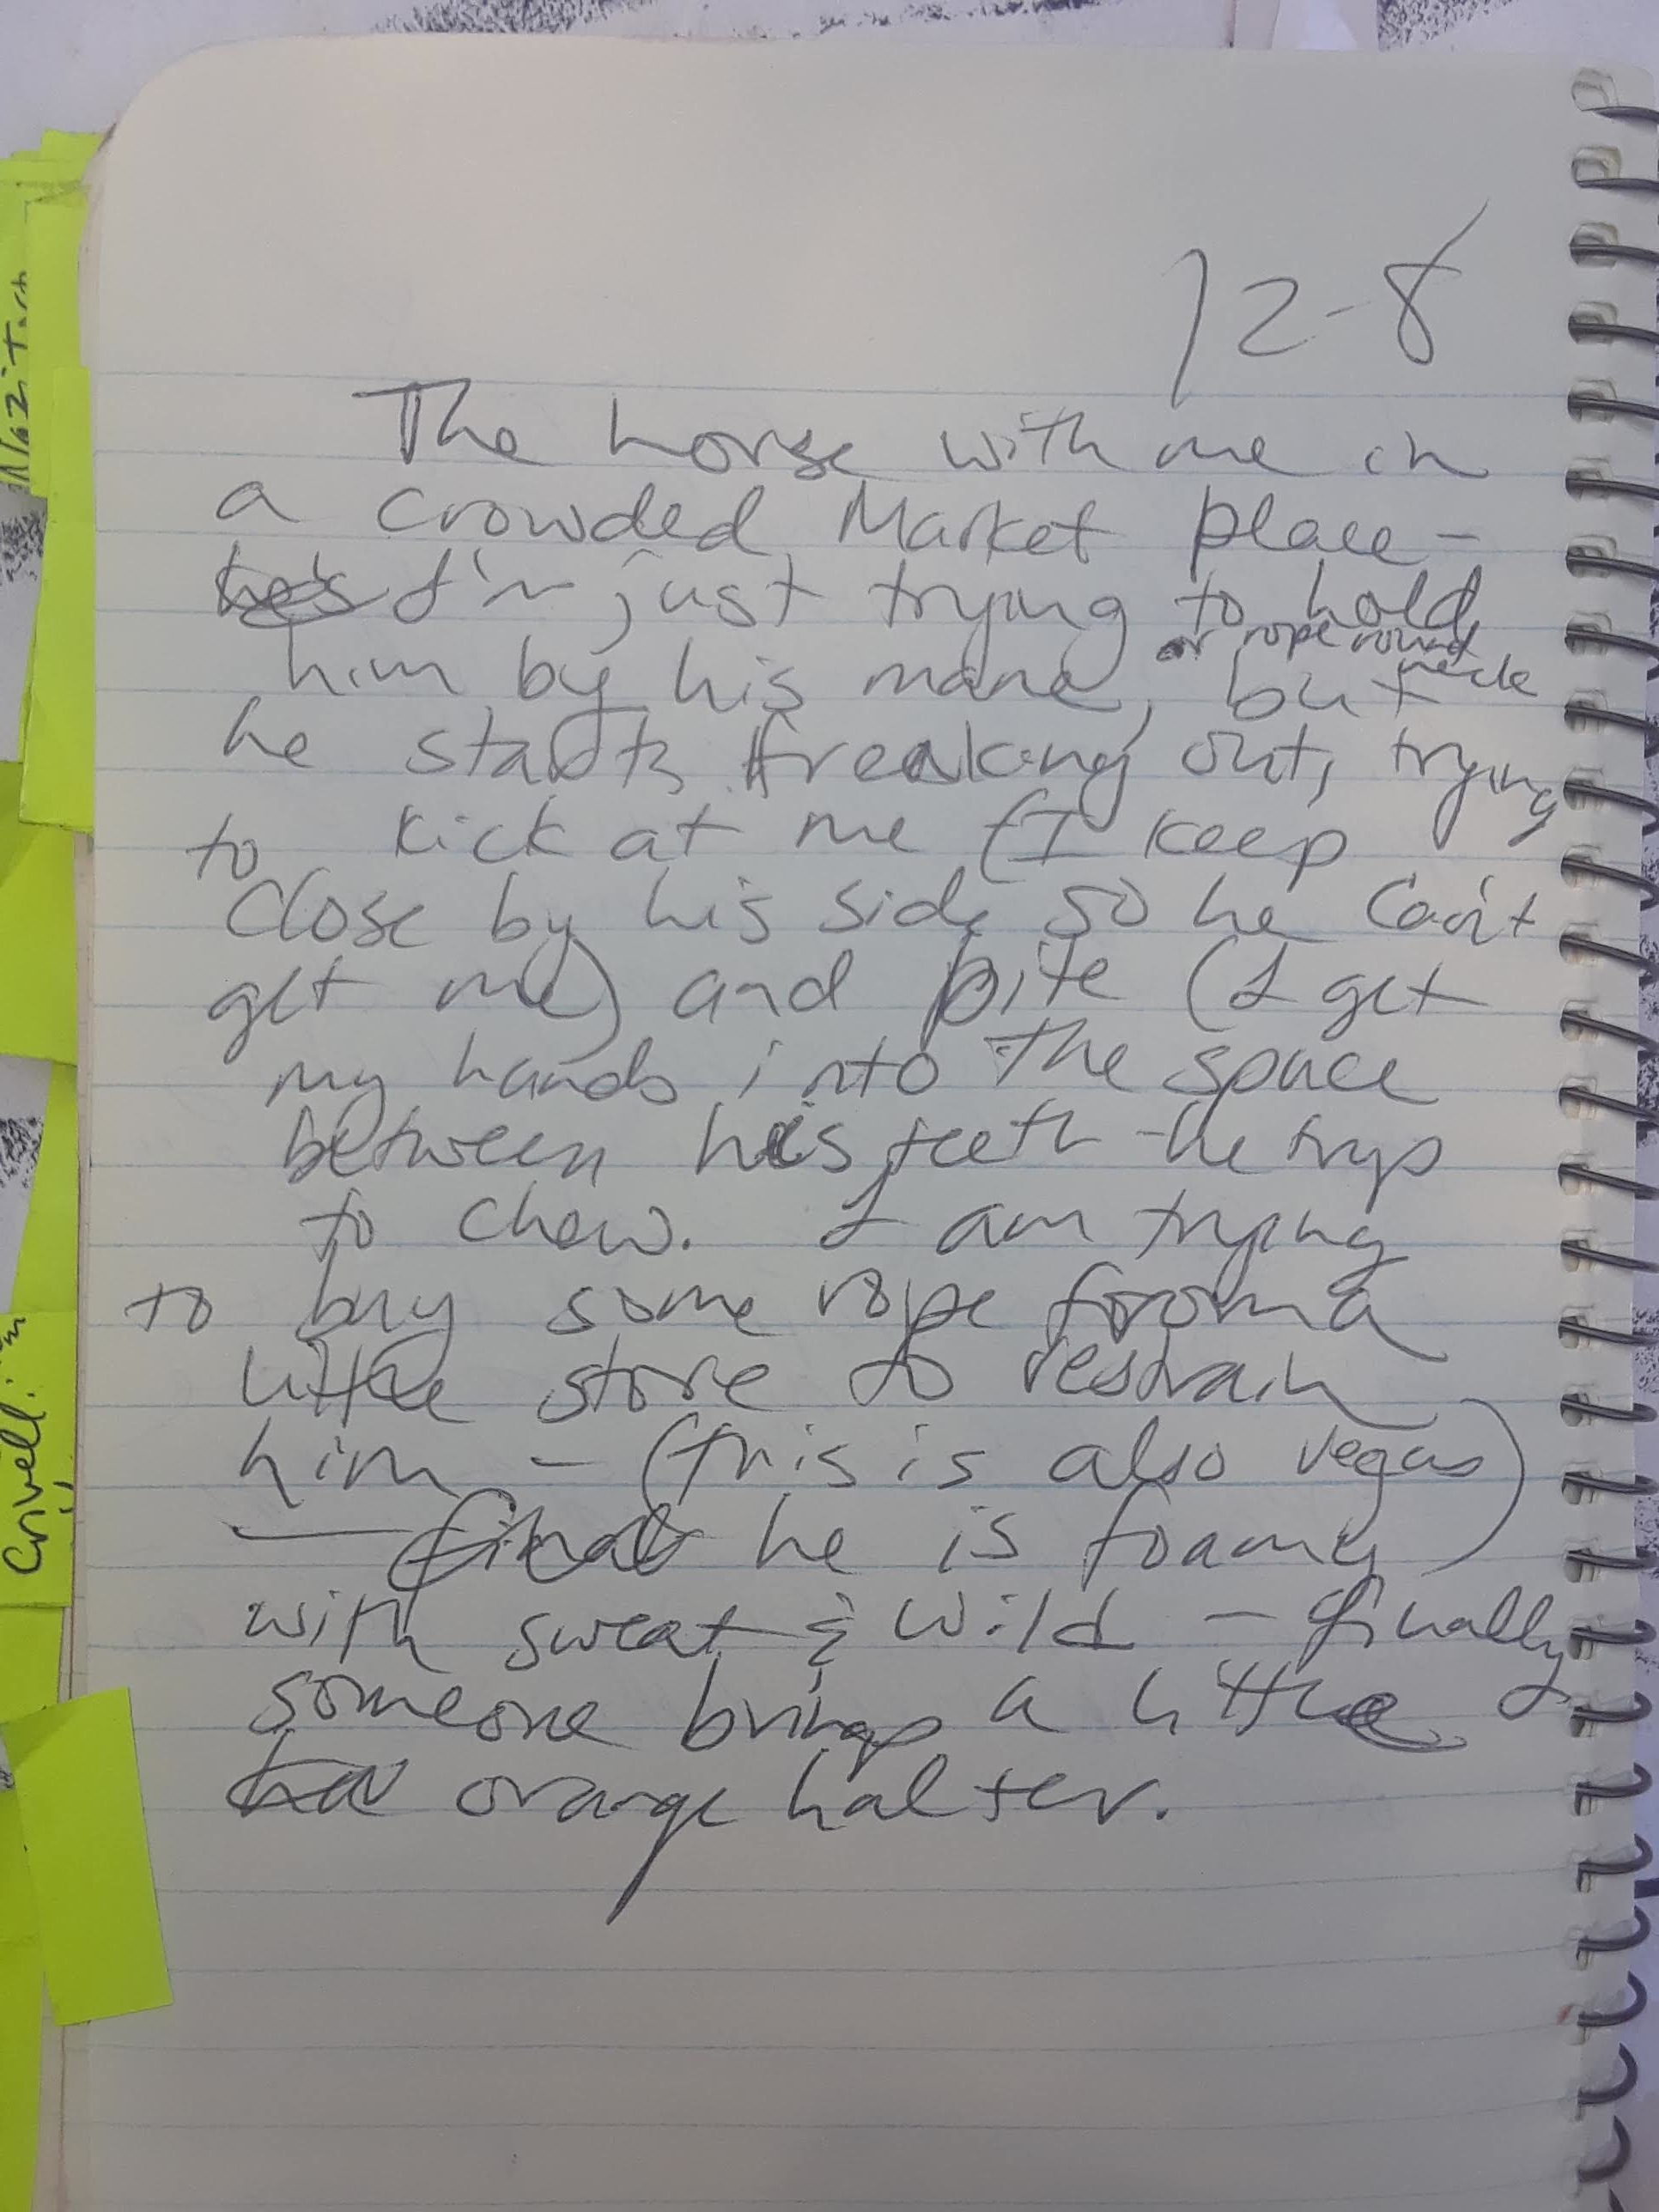 12-8
The horse with me in
a crowded Market place -
he's I'm just trying to hold
or rope round
neck
him by his mane, but
he starts freaking out, trying
to kick at me (I keep
close by his side so he can't
get me) and bite (I get
my hands into the space
between his teeth - he trys
to chew. I am trying
to buy some rope from a
little store to restrain
him - (this is also vegas)
— final he is foamy
with sweat & wild - finally
someone brings a little
orange halter.
Crivelli